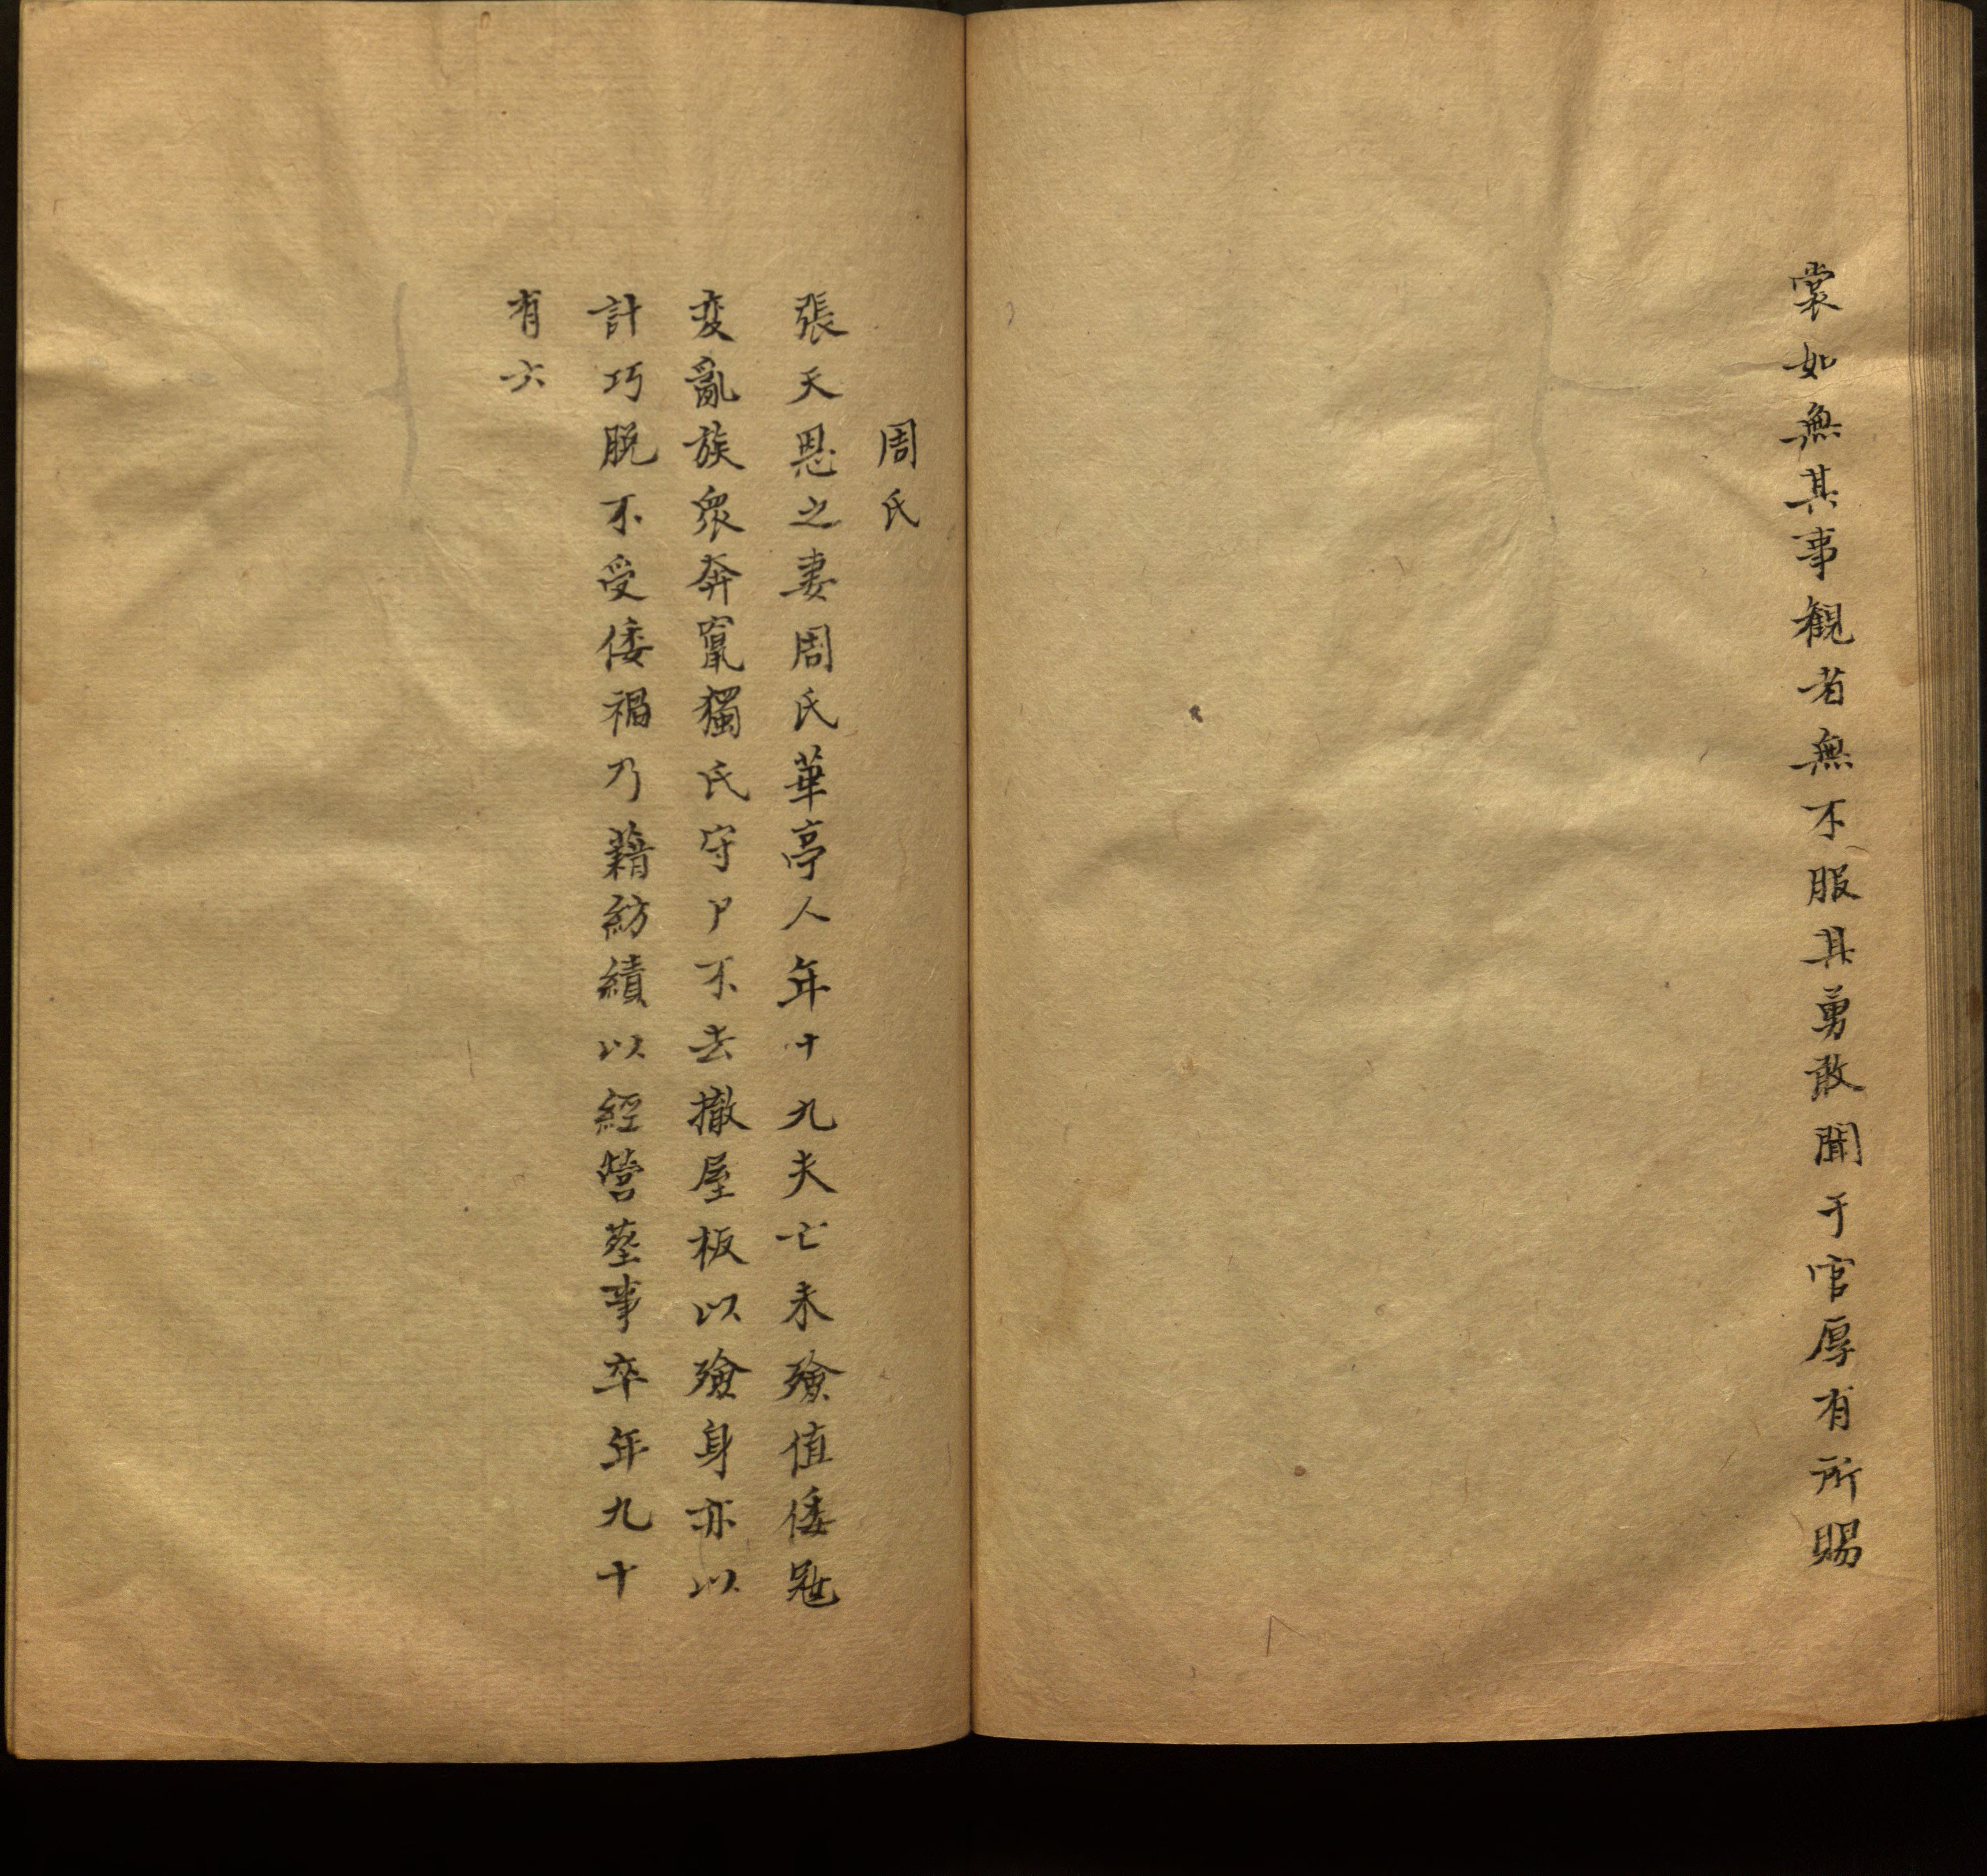 裳如無其事觀者無不服其勇敢聞于官厚有所賜
周氏
張天恩之妻周氏華亭人年十九夫亡未殮值倭冦
変亂族衆奔竄獨氏守尸不去撤屋板以殮身亦以
計巧脫不受倭禍乃藉紡績以經營塟事卒年九十
有六